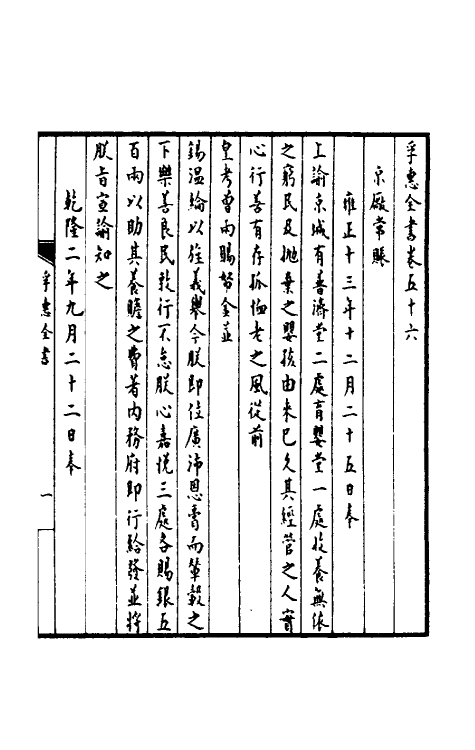 孚惠全書卷五十六
京廠常賑
雍正十三年十二月二十五日奉
上諭京城有普濟堂二處育嬰堂一處收養無依
之窮民及拋棄之嬰孩由來已久其經營之人實
心行善有存孤恤老之風從前
皇考曾兩賜帑金並
錫溫綸以旌義舉今朕即位廣沛恩膏而輦轂之
下樂善良民敦行不怠朕心嘉悅三處各賜銀五
百兩以助其養贍之費著內務府即行給發並將
朕旨宣諭知之
乾隆二年九月二十二日奉
孚惠全書
一